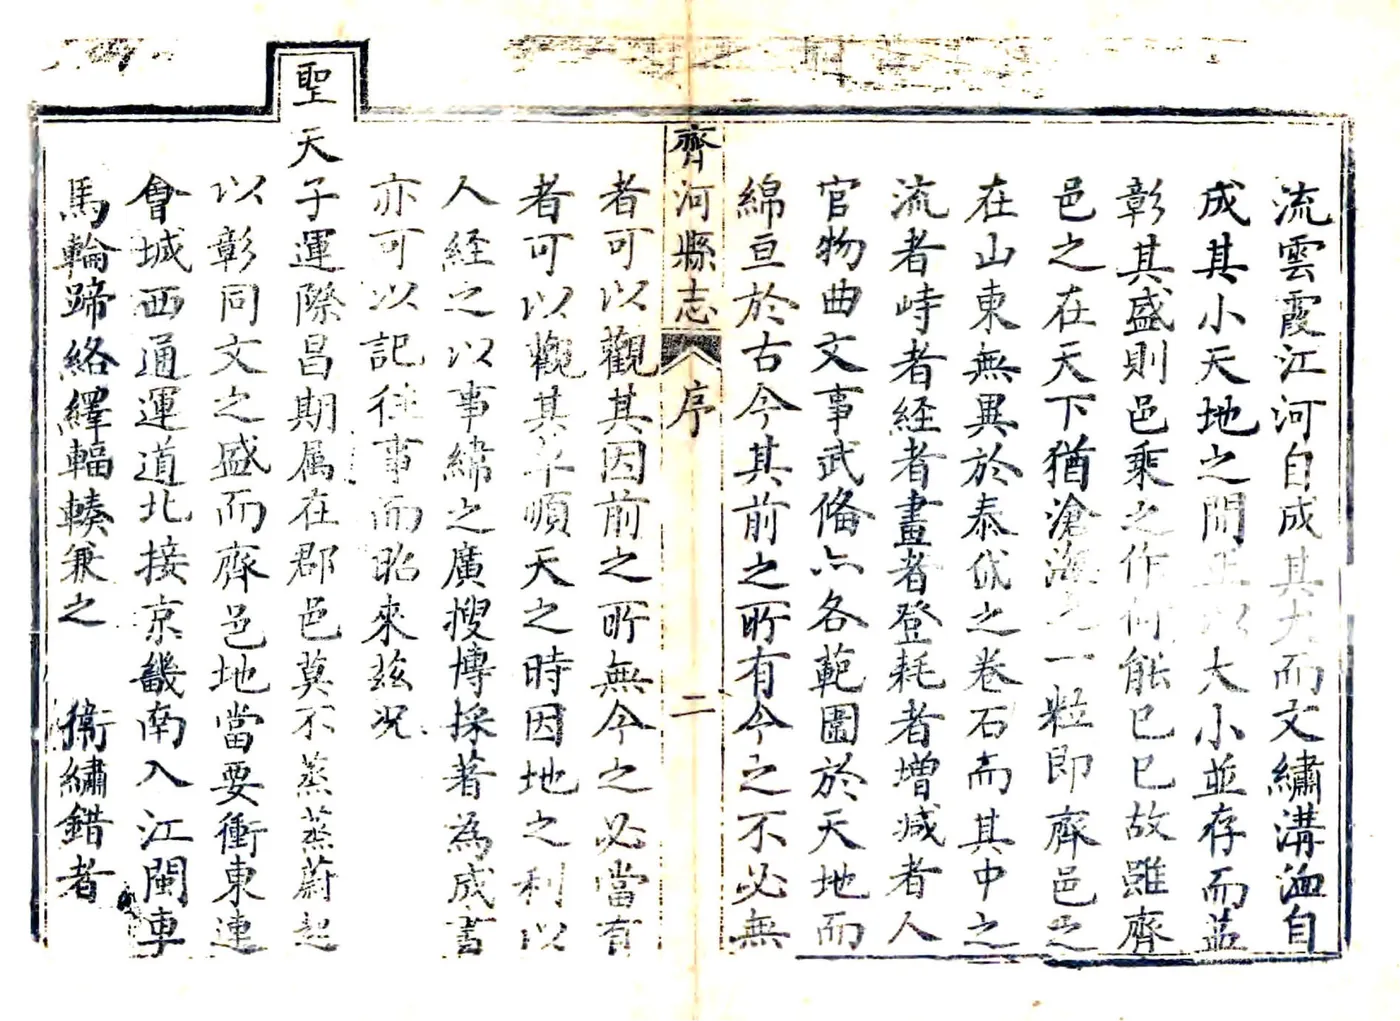 流雲霞江河自成其大而文繡溝洫自
成其小天地之間正以大小並存而益
彰其盛則邑乘之作何能已已故雖齊
邑之在天下猶滄海之一粒即齊邑之
在山東無異於泰岱之卷石而其中之
流者峙者経者畫者登耗者增减者人
官物曲文事武備亦各範圍於天地而
綿亘於古今其前之所有今之不必無
齊河縣志
序
二
者可以觀其因前之所無今之必當有
者可以觀其革順天之時因地之利以
人経之以事緯之廣搜博採著為成書
亦可以記往事而昭來茲况
聖天子運際昌期属在郡邑莫不蒸蒸蔚起
以彰同文之盛而齊邑地當要衝東連
會城西通運道北接京畿南入江閩車
馬輪蹄絡繹輻輳兼之 衛繡錯者